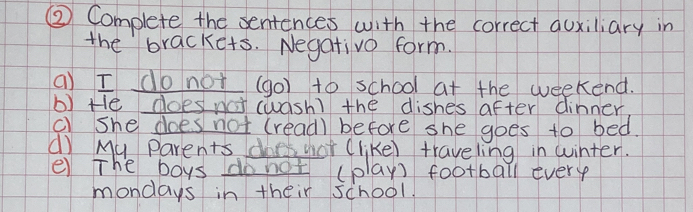 ② Complete the sentences with the correct auxiliary in
the brackets. Negativo form.
a) I do not (go) to school at the weekend.
b) He does not (wash) the dishes after dinner
c) She does not (read) before she goes to bed.
d) My Parents does not (like) traveling in winter.
e) The boys do not (play) football every
mondays in their school.